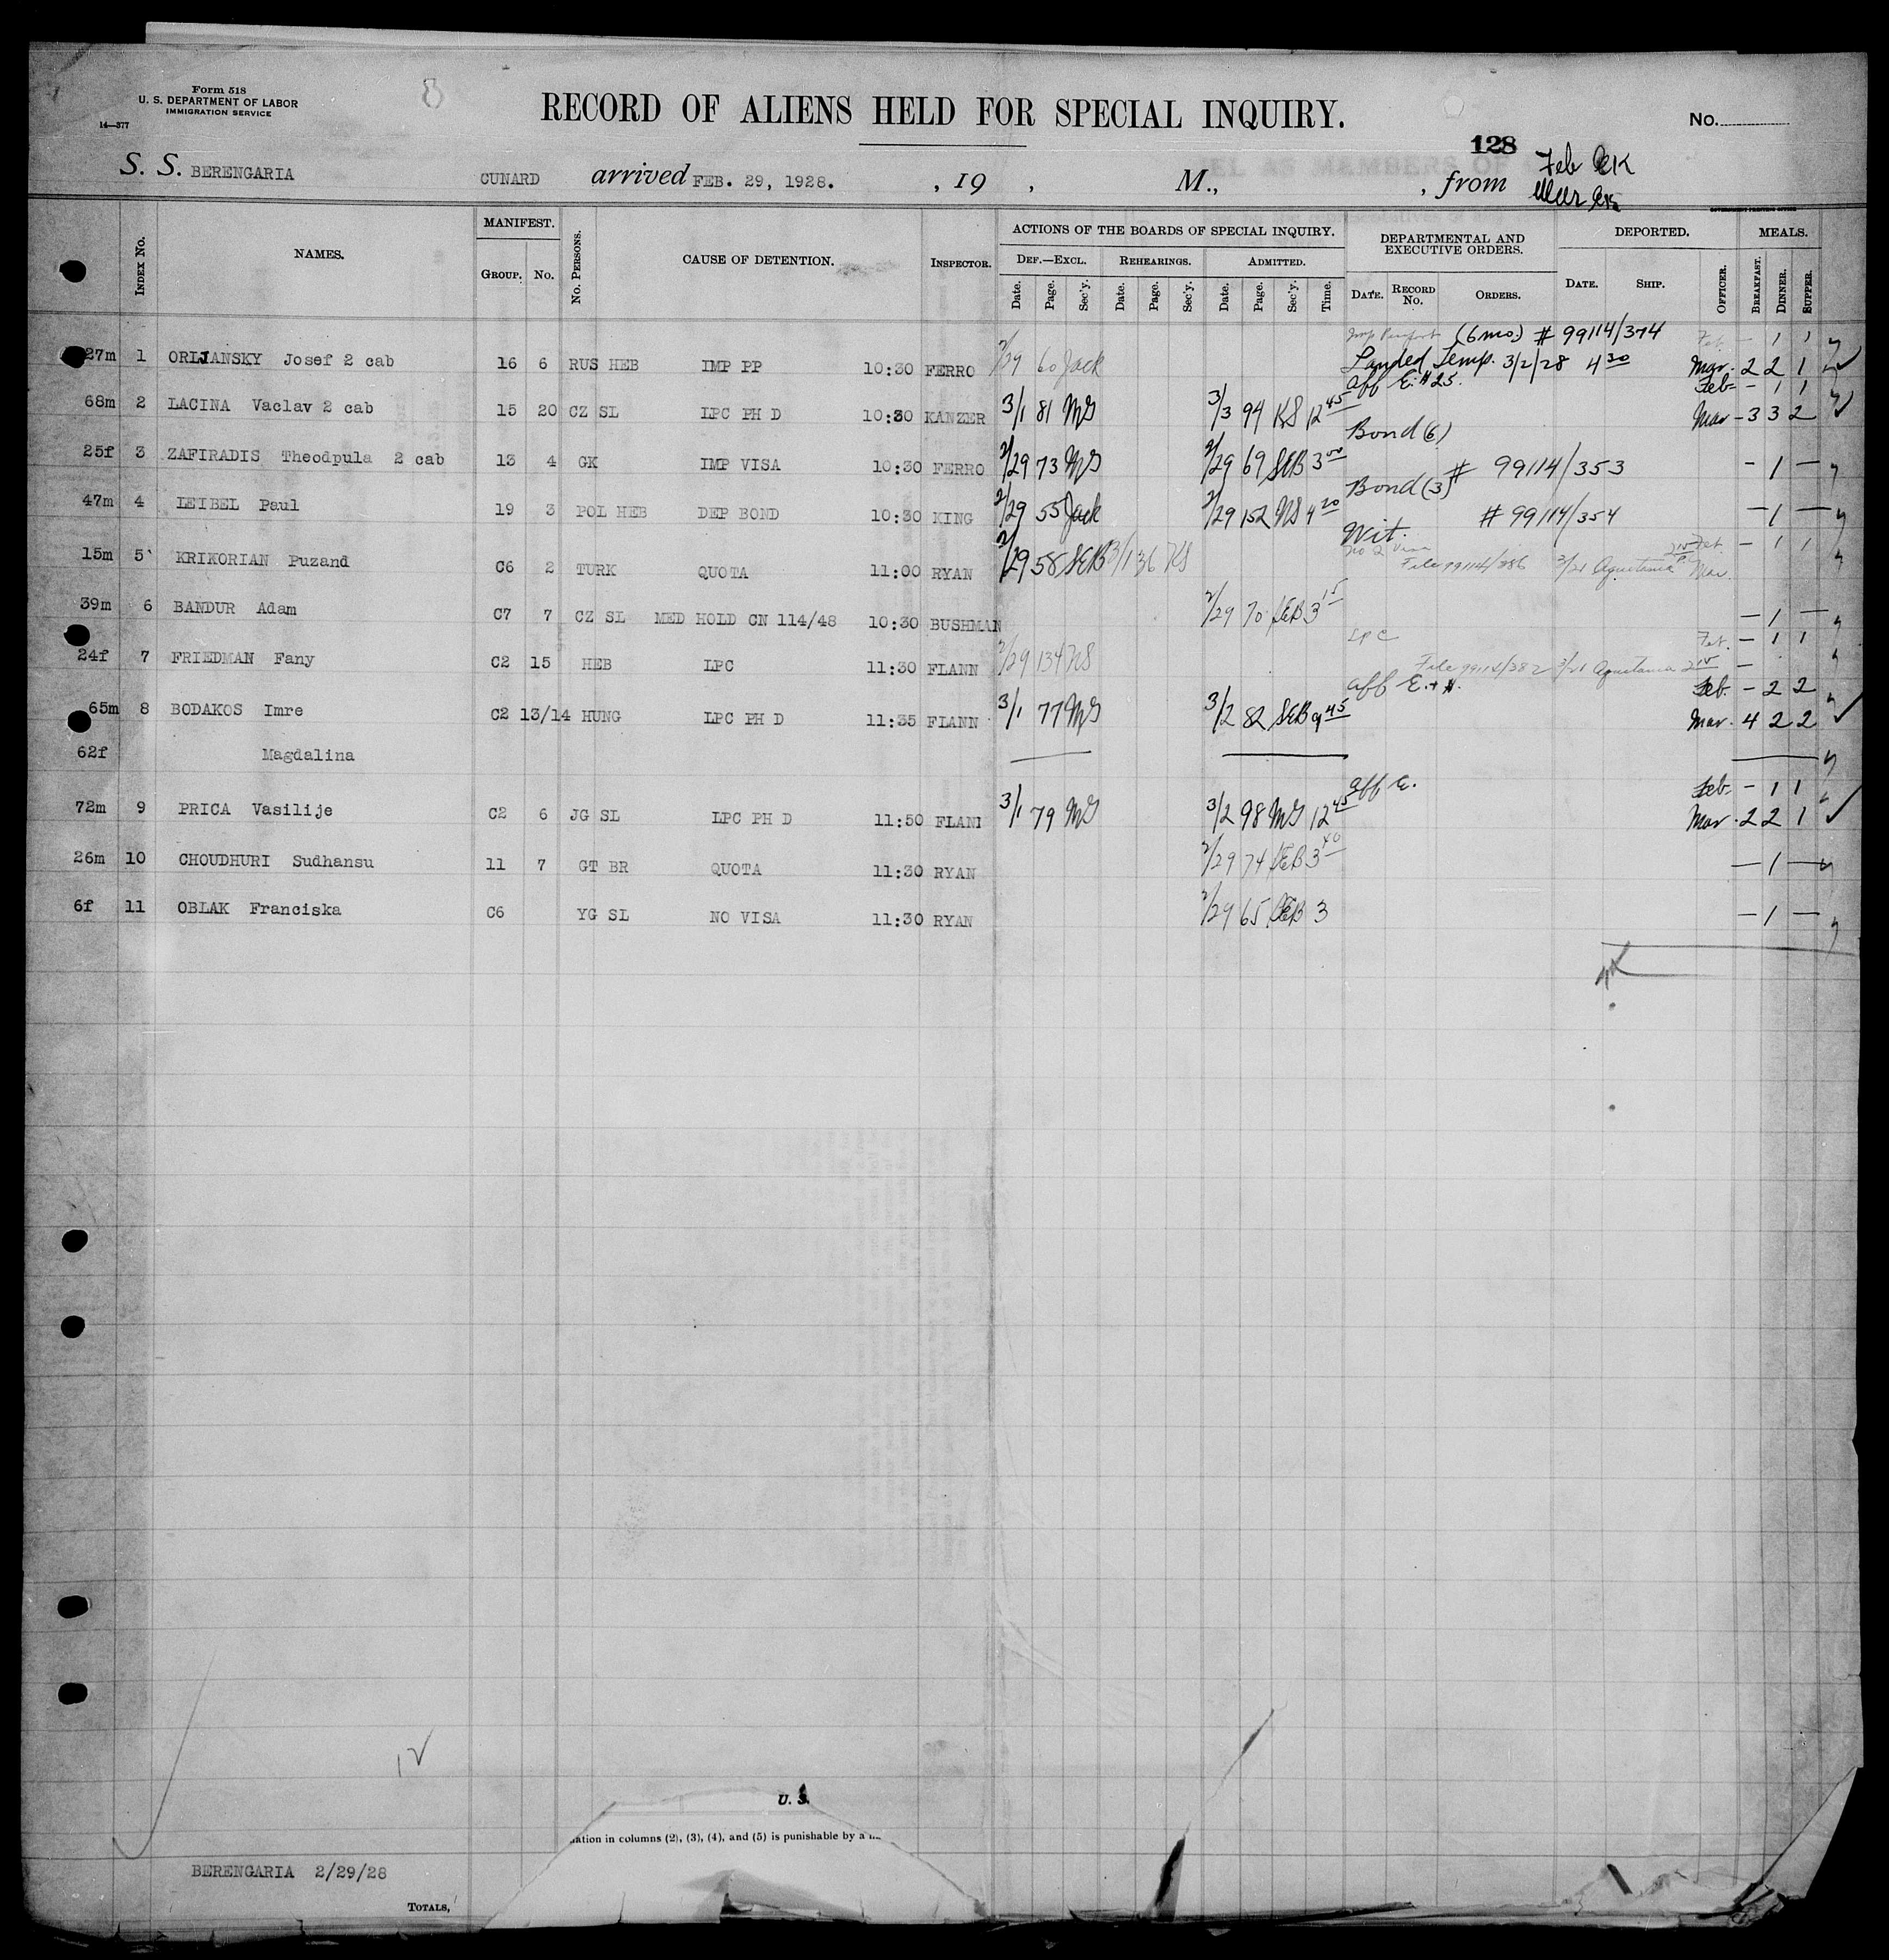 Form 518
U. S. DEPARTMENT OF LABOR
IMMIGRATION SERVICE
14—377
RECORD OF ALIENS HELD FOR SPECIAL INQUIRY.
No.
128
S. S. BERENGARIA CUNARD arrived FEB. 29, 1928. , 19 , M., , from
Feb
GOVERNMENT PRINTING OFFICE
Index No. NAMES. MANIFEST. Group. No. No. Persons. CAUSE OF DETENTION. Inspector. ACTIONS OF THE BOARDS OF SPECIAL INQUIRY. Def.—Excl. Date. Page. Sec'y. Rehearings. Date. Page. Sec'y. Admitted. Date. Page. Sec'y. Time. DEPARTMENTAL AND EXECUTIVE ORDERS. Date. Record No. Orders. DEPORTED. Date. Ship. Officer. MEALS. Breakfast. Dinner. Supper.
(6 mo.) # 99114/374 Feb. — 1 1
27m 1 ORIJANSKY Josef 2 cab 16 6 RUS HEB IMP PP 10:30 FERRO 2/29 60 Jack Landed Temp. 3/2/28 4 30 Mar. 2 2 1
aff E. #25. Feb — 1 1
68m 2 LACINA Vaclav 2 cab 15 20 CZ SL LPC PH D 10:30 KANZER 3/1 81 MG 3/3 94 KS 12 45 Mar — 3 3 2
Bond (6)
25f 3 ZAFIRADIS Theodpula 2 cab 13 4 GK IMP VISA 10:30 FERRO 2/29 73 MG 2/29 69 SEB 3 00 # 99114/353 — 1 —
Bond (3)
47m 4 LEIBEL Paul 19 3 POL HEB DEP BOND 10:30 KING 2/29 55 Jack 2/29 152 NS 4 20 # 99114/354 — 1 —
Wit.
No Q Visa Feb. — 1 1
15m 5 KRIKORIAN Puzand C6 2 TURK QUOTA 11:00 RYAN 2/29 58 SEB 3/1 36 NS File 99114/386 3/21 Aquitania Mar.
39m 6 BANDUR Adam C7 7 CZ SL MED HOLD CN 114/48 10:30 BUSHMAN 2/29 70 SEB 3 15 — 1 —
LPC Feb. — 1 1
24f 7 FRIEDMAN Fany C2 15 HEB LPC 11:30 FLANN 2/29 134 NS File 99114/382 3/21 Aquitania 2 15 —
aff E. + H. Feb. — 2 2
65m 8 BODAKOS Imre C2 13/14 HUNG LPC PH D 11:35 FLANN 3/1 77 MG 3/2 82 SEB 9 45 Mar. 4 2 2
62f Magdalina
aff E. Feb. — 1 1
72m 9 PRICA Vasilije C2 6 JG SL LPC PH D 11:50 FLANI 3/1 79 MG 3/2 98 MG 12 45 Mar. 2 2 1
26m 10 CHOUDHURI Sudhansu 11 7 GT BR QUOTA 11:30 RYAN 2/29 74 SEB 3 40 — 1 —
6f 11 OBLAK Franciska C6 YG SL NO VISA 11:30 RYAN 2/29 65 SEB 3 — 1 —
12
U. S.
ation in columns (2), (3), (4), and (5) is punishable by a
BERENGARIA 2/29/28
Totals,